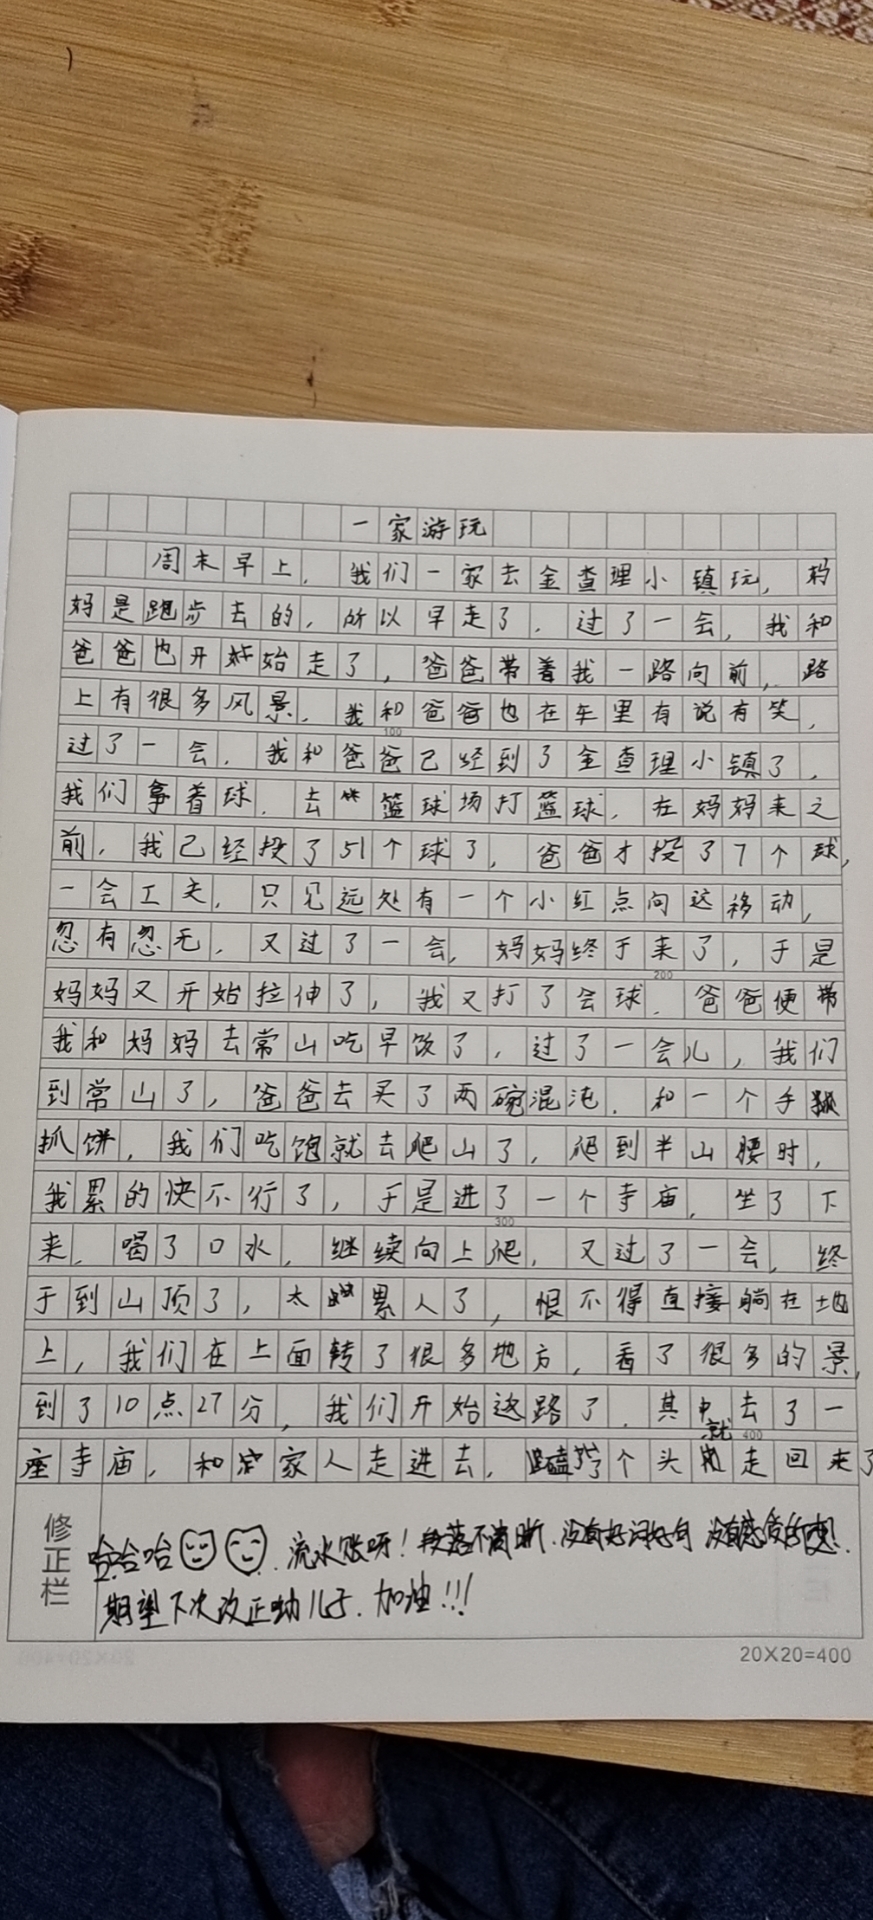 一家游玩
周末早上，我们一家去金查理小镇玩，妈
妈是跑步去的，所以早走了．过了一会，我和
爸爸也开始走了，爸爸带着我一路向前，路
上有很多风景．我和爸爸也在车里有说有笑，
100
过了一会．我和爸爸已经到了金查理小镇了，
我们拿着球．去篮球场打篮球．在妈妈来之
前，我已经投了51个球了，爸爸才投了7个球，
一会工夫，只见远处有一个小红点向这移动，
忽有忽无，又过了一会，妈妈终于来了，于是
200
妈妈又开始拉伸了，我又打了会球．爸爸便带
我和妈妈去常山吃早饭了，过了一会儿，我们
到常山了，爸爸去买了两碗混沌．和一个手
抓饼，我们吃饱就去爬山了，爬到半山腰时，
我累的快不行了，于是进了一个寺庙，坐了下
300
来，喝了口水，继续向上爬，又过了一会，终
于到山顶了，太累人了，恨不得直接躺在地
上，我们在上面转了很多地方，看了很多的景，
到了10点27分，我们开始返路了．其中去了一
就 400
座寺庙，和家人走进去，磕了个头走回来了
修正栏
哈哈哈 流水账呀！段落不清晰．没有好词好句 没有感发的想．
期望下次改正呦儿子．加油!!!
20X20=400